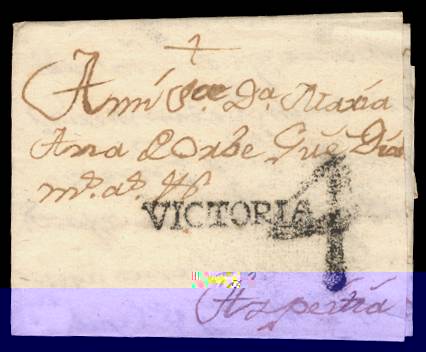 A mi Sra. Da. Maria
Ana D Orbe Gue Dios
ms. as.
VICTORIA 4
Aspeitia